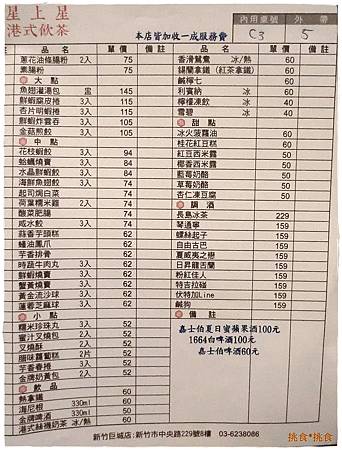 星上星
港式飲茶
本店皆加收一成服務費
內用桌號 外帶
C3 5
品名 單價 備註
蔥花油條腸粉 2入 75
素腸粉 75
大點
魚翅灌湯包 盅 145
鮮蝦腐皮捲 3入 115
杏片明蝦捲 3入 115
鮮蝦炸雲吞 3入 115
金菇煎餃 3入 105
中點
花枝蝦餃 3入 94
蛤蠣燒賣 3入 84
水晶鮮蝦餃 3入 84
海鮮魚翅餃 3入 74
起司焗白菜 74
荷葉糯米雞 2入 74
酸菜肥腸 74
咸水餃 3入 74
蒜香芋頭糕 62
蠔油鳳爪 62
芋香排骨 62
時蔬牛肉丸 3入 62
鮮蝦燒賣 3入 62
蟹黃燒賣 3入 62
黃金流沙球 3入 62
蓮蓉芝麻球 3入 62
小點
糯米珍珠丸 3入 52
蜜汁叉燒包 2入 52
叉燒酥 2入 52
臘味蘿蔔糕 2片 52
芋香春捲 3入 52
金牌奶黃包 2入 52
飲品
熱拿鐵 60
海尼根 330ml 60
金牌啤酒 330ml 50
港式絲襪奶茶 冰/熱 60
品名 單價 備註
香滑鴛鴦 冰/熱 60
錫蘭拿鐵(紅茶拿鐵) 60
鹹檸七 60
利賓納 冰 60
檸檬凍飲 冰 40
雪碧 冰 40
甜點
冰火菠蘿油 60
桂花紅豆糕 60
紅豆西米露 50
椰香西米露 50
藍莓奶酪 50
草莓奶酪 50
杏仁凍豆腐 50
調酒
長島冰茶 229
琴通寧 159
螺絲起子 159
自由古巴 159
夏威夷之櫻 159
日昇龍舌蘭 159
粉紅佳人 159
特吉拉碰 159
伏特加Line 159
鹹狗 159
備註
嘉士伯夏日蜜蘋果酒100元
1664白啤酒100元
嘉士伯啤酒60元
新竹巨城店:新竹市中央路229號8樓 03-6238086
挑食*挑食